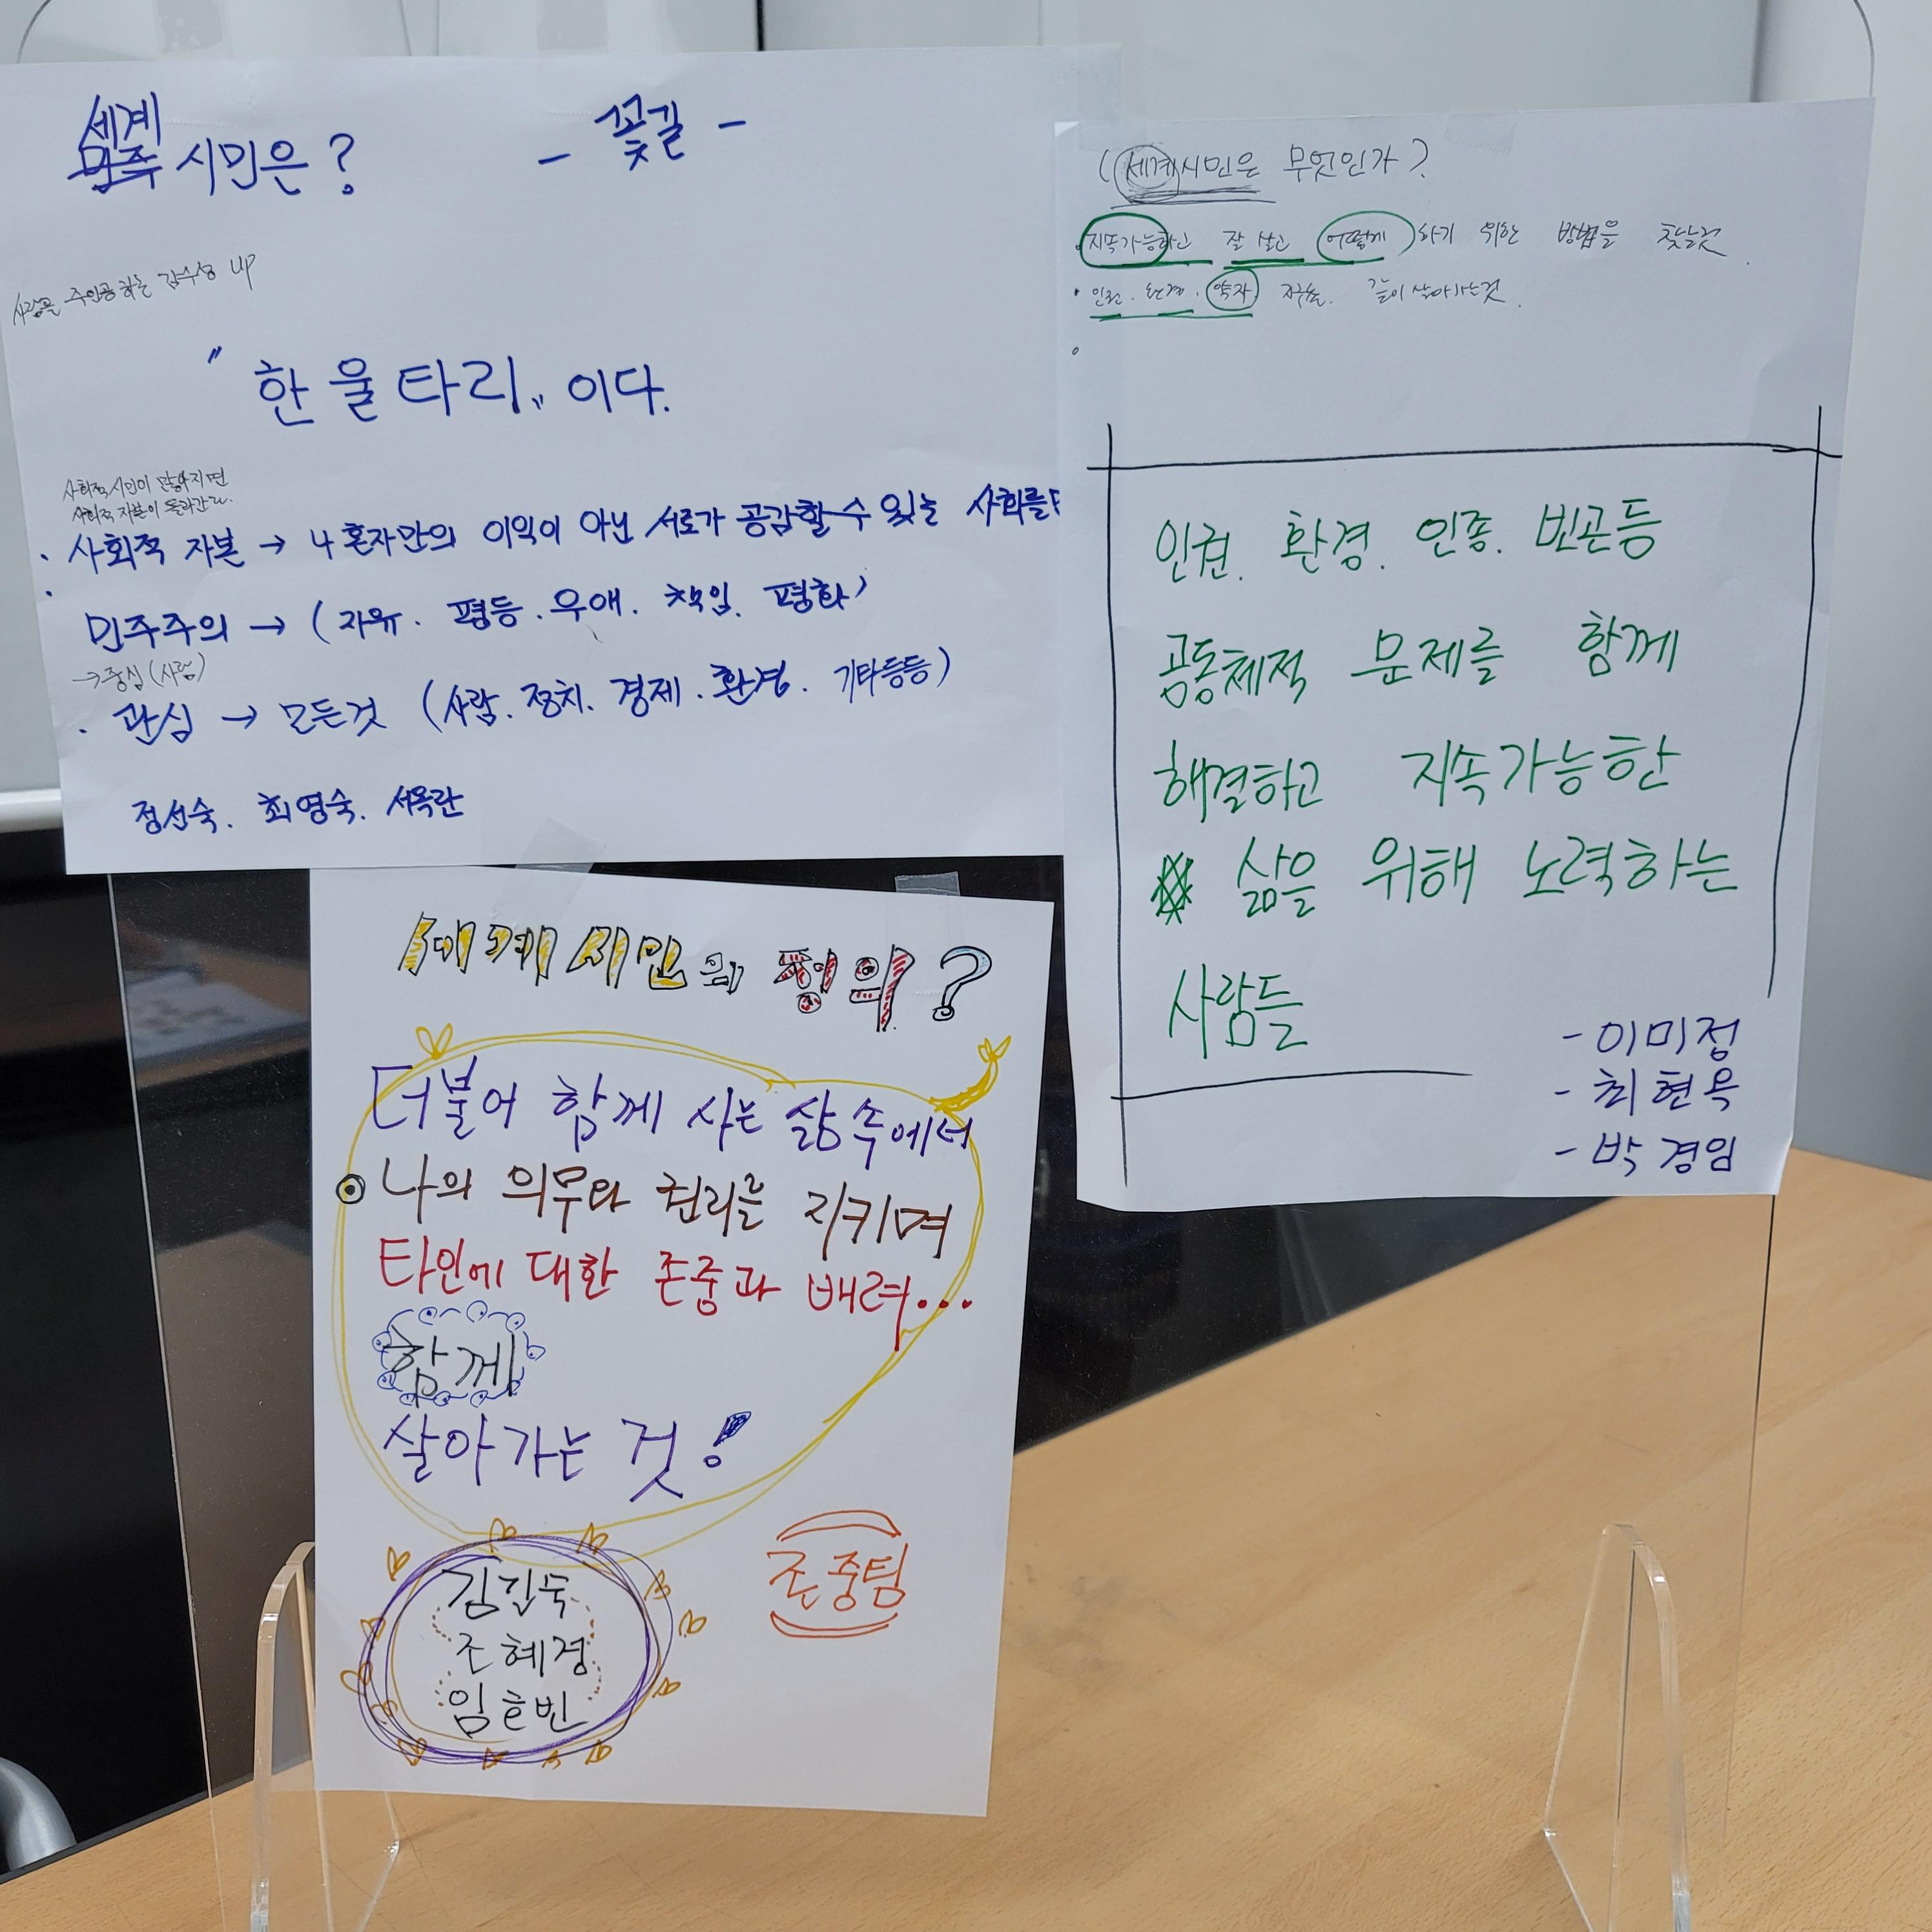 세계
민주 시민은?
- 꽃길 -
사람을 주인공하는 감수성 UP
"한울타리" 이다.
사회적 시민이 많아지면
사회적 자본이 올라간다.
· 사회적 자본 → 나 혼자만의 이익이 아닌 서로가 공감할 수 있는 사회를
· 민주주의 → (자유. 평등. 우애. 책임. 평화)
→ 중심 (사람)
· 관심 → 모든것 (사람. 정치. 경제. 환경. 기타등등)
정선숙. 최영숙. 서옥란
(세계시민은 무엇인가?
· 지속가능하고 잘 살고 어떻게 하기 위한 방법을 찾는것.
· 인권. 약자 같이 살아가는것.
인권. 환경. 인종. 빈곤등
공동체적 문제를 함께
해결하고 지속가능한
삶을 위해 노력하는
사람들
- 이미정
- 최현욱
- 박경임
세계시민의 정의?
더불어 함께 사는 삶 속에서
나의 의무와 권리를 지키며
타인에 대한 존중과 배려...
함께
살아가는 것!
조혜정
존중팀